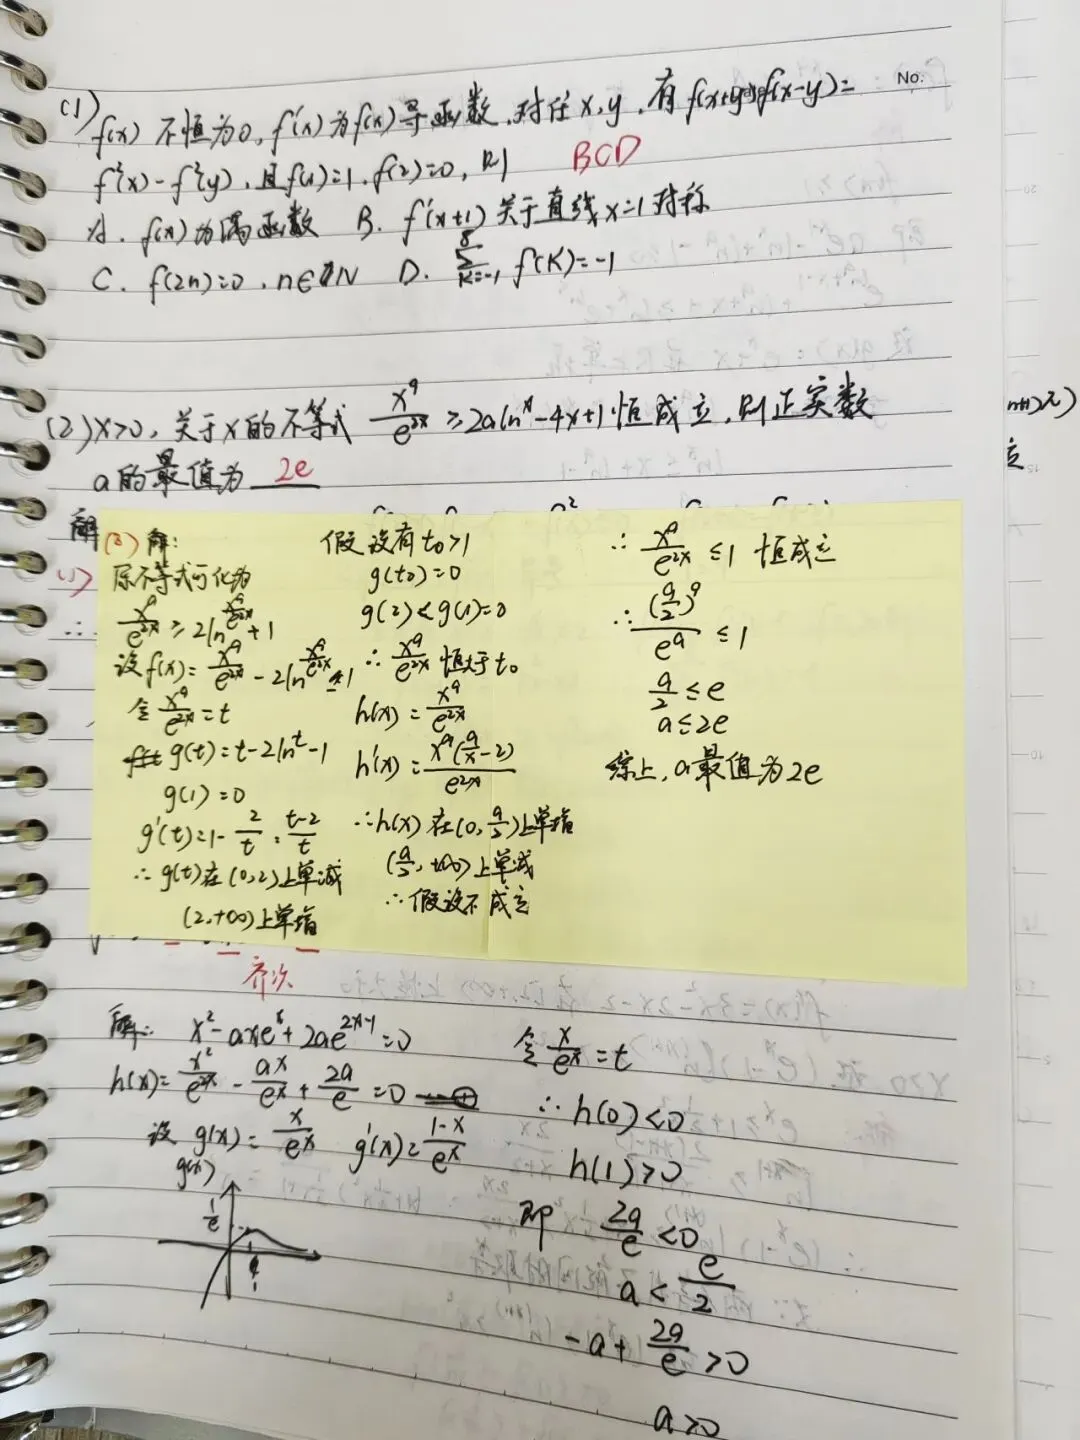 No.
(1) f(x) 不恒为0, f'(x)为f(x)导函数, 对任x,y, 有f(x+y)f(x-y)=
f²(x)-f²(y), 且f(1)=1, f(2)=0, 则 BCD
A. f(x)为偶函数 B. f'(x+1)关于直线x=1对称
C. f(2n)=0, n∈N D. ∑_{K=-1}^{8} f(K)=-1
(2) x>0, 关于x的不等式 x^a/e^{2x} ≥ 2aln^x-4x+1恒成立, 则正实数
a的最值为 2e
解
(2) 解:
(1)
原不等式可化为
x^a/e^{2x} ≥ 2ln^{x^a/e^{2x}}+1
设f(x)= x^a/e^{2x} - 2ln^{x^a/e^{2x}} - 1
令 x^a/e^{2x} = t
g(t)=t-2ln^t-1
g(1)=0
g'(t)=1-2/t=(t-2)/t
∴g(t)在(0,2)上单减
(2,+∞)上单增
假设有t₀>1
g(t₀)=0
g(2)<g(1)=0
∴ x^a/e^{2x} 恒大于t₀
h(x)= x^a/e^{2x}
h'(x)= x^a(a/x-2)/e^{2x}
∴h(x)在(0, a/2)上单增
(a/2, +∞)上单减
∴假设不成立
∴ x^a/e^{2x} ≤1 恒成立
∴ (a/2)^a/e^a ≤1
a/2 ≤e
a≤2e
综上, a最值为2e
齐次
解: x²-axe^x+2ae^{2x-1}=0
h(x)= x²/e^{2x} - ax/e^x + 2a/e =0
设 g(x)= x/e^x g'(x)= (1-x)/e^x
g(x)
1/e
1
令 x/e^x = t
∴h(0)<0
h(1)>0
即 2a/e <0
a< e/2
-a+ 2a/e >0
a>0